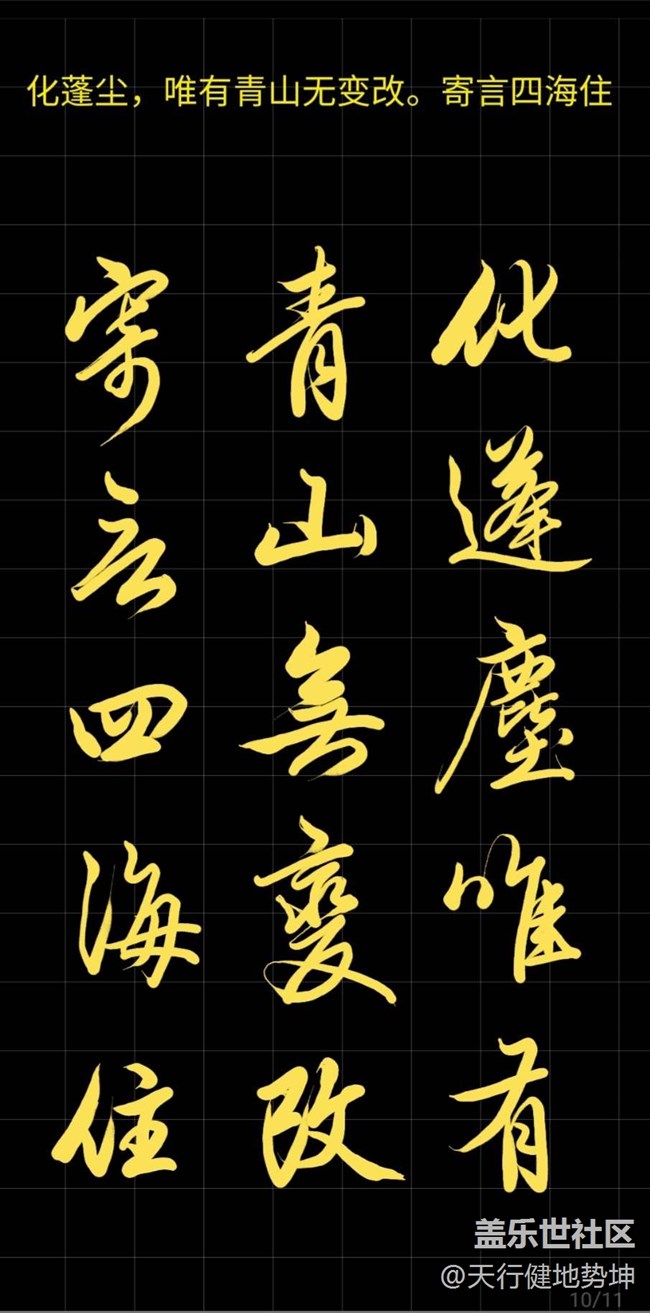 化蓬尘，唯有青山无变改。寄言四海住
化蓬塵唯有
青山無變改
寄言四海住
盖乐世社区
@天行健地势坤
10/11